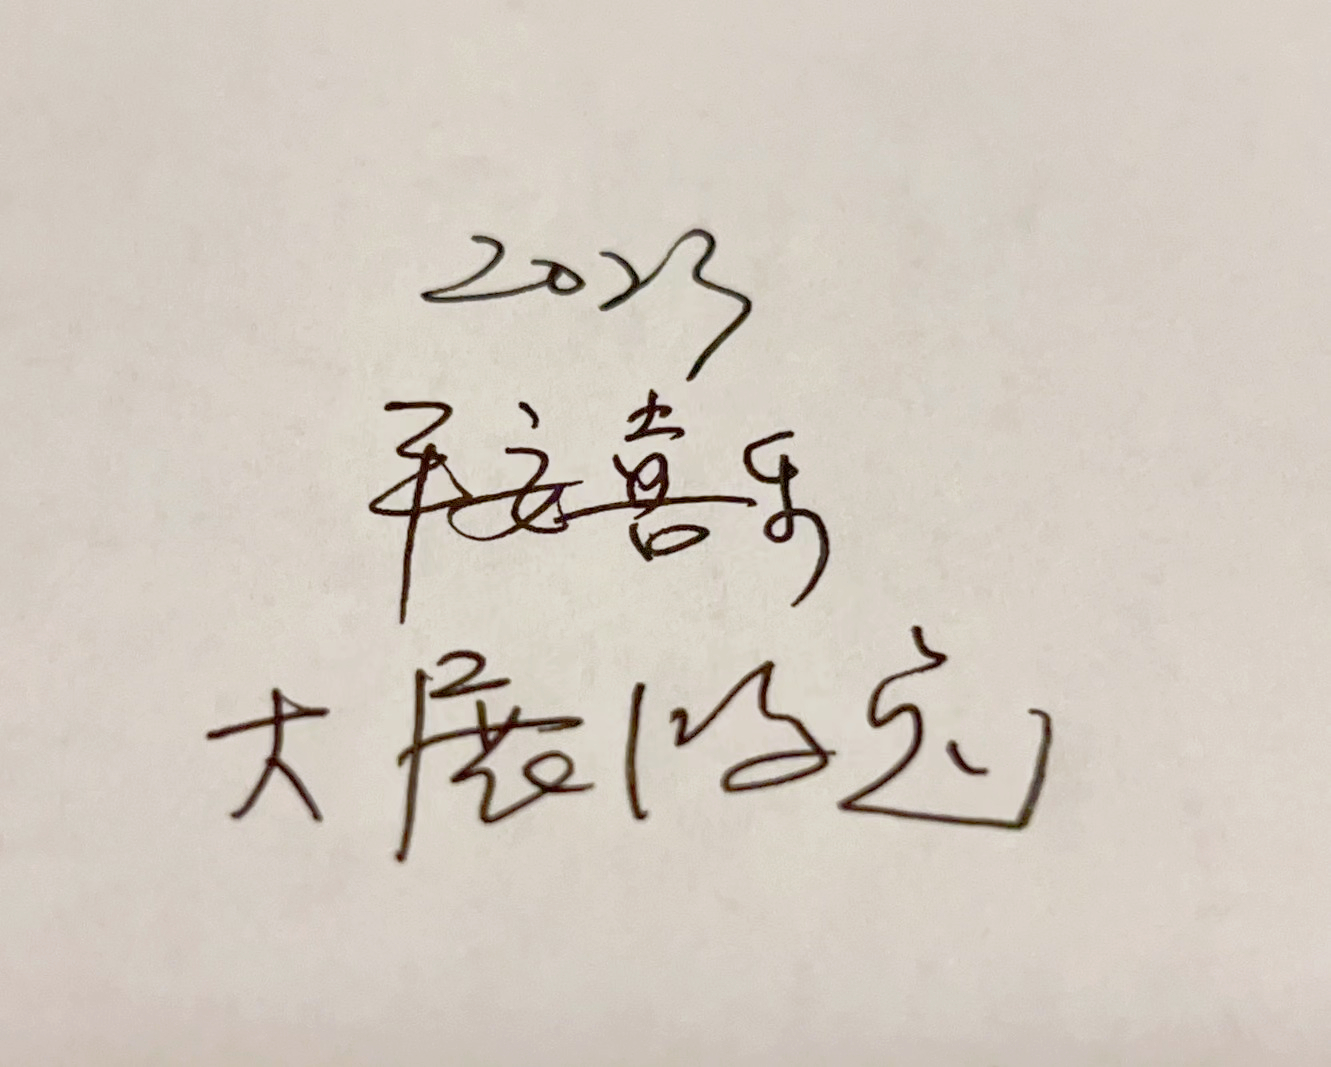 2023
平安喜乐
大展鸿图